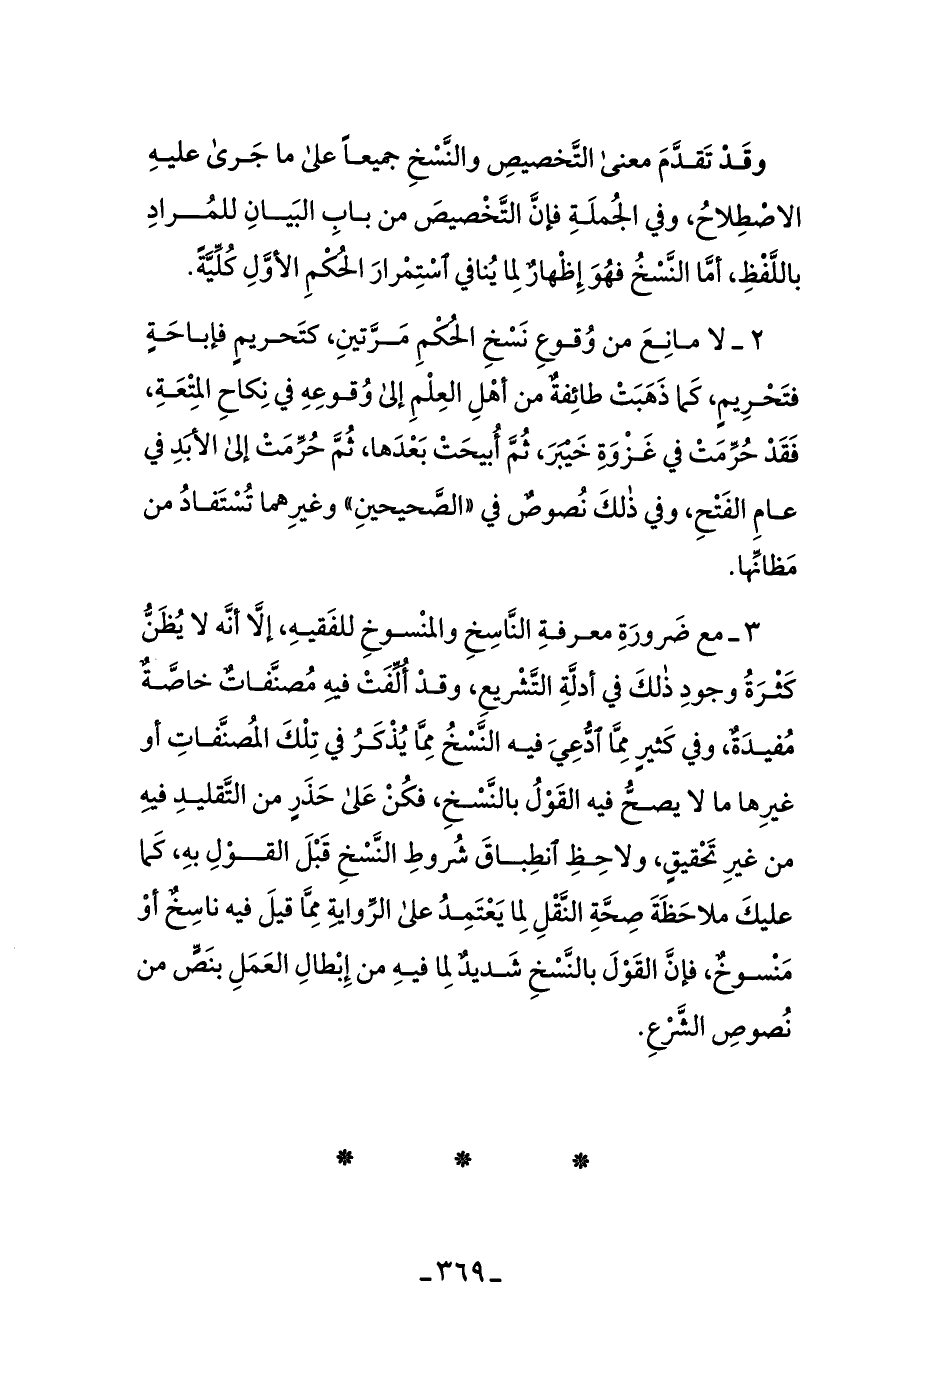 وقَدْ تَقدَّمَ معنىٰ التَّخصيصِ والنَّسْخِ جميعاً علىٰ ما جَرىٰ عليهِ
الاصْطِلاحُ، وفي الجُملَةِ فإنَّ التَّخْصيصَ من بابِ البَيَانِ للمُرادِ
باللَّفْظِ، أمَّا النَّسْخُ فهُوَ إِظْهارٌ لِما يُنافي ٱسْتِمْرارَ الحُكْمِ الأوَّلِ كُلِّيَّةً.
٢ ـ لا مانِعَ من وُقوعِ نَسْخِ الحُكْمِ مَرَّتينِ، كتَحريمٍ فإباحَةٍ
فتَحْرِيمٍ، كما ذَهَبَتْ طائِفةٌ من أهْلِ العِلْمِ إلىٰ وُقوعِهِ في نِكاحِ المِتْعَةِ،
فَقَدْ حُرِّمَتْ في غَزْوَةِ خَيْبَرَ، ثُمَّ أُبيحَتْ بَعْدَها، ثُمَّ حُرِّمَتْ إلىٰ الأبَدِ في
عامِ الفَتْحِ، وفي ذٰلكَ نُصوصٌ في «الصَّحيحينِ» وغيرِهما تُسْتَفادُ من
مَظانِّها.
٣ ـ مع ضَرورَةِ معرفةِ النَّاسِخِ والمنْسوخِ للفَقيهِ، إلَّا أنَّه لا يُظَنُّ
كَثْرَةُ وجودِ ذٰلكَ في أدلَّةِ التَّشْريعِ، وقدْ أُلِّفَتْ فيهِ مُصنَّفاتٌ خاصَّةٌ
مُفيدَةٌ، وفي كثيرٍ ممَّا ٱدُّعِيَ فيه النَّسْخُ ممَّا يُذْكَرُ في تِلْكَ المُصنَّفاتِ أو
غيرِها ما لا يصحُّ فيه القَوْلُ بالنَّسْخِ، فكُنْ عَلىٰ حَذَرٍ من التَّقليدِ فيهِ
من غيرِ تَحْقيقٍ، ولاحِظِ ٱنطِباقَ شُروطِ النَّسْخِ قَبْلَ القوْلِ بهِ، كَما
عليكَ ملاحَظَةَ صِحَّةِ النَّقْلِ لِما يَعْتَمِدُ علىٰ الرِّوايةِ ممَّا قيلَ فيه ناسِخٌ أوْ
مَنْسوخٌ، فإنَّ القَوْلَ بالنَّسْخِ شَديدٌ لِما فيهِ من إِبْطالِ العَمَلِ بنَصٍّ من
نُصوصِ الشَّرْعِ.
* * *
ـ ٣٦٩ ـ